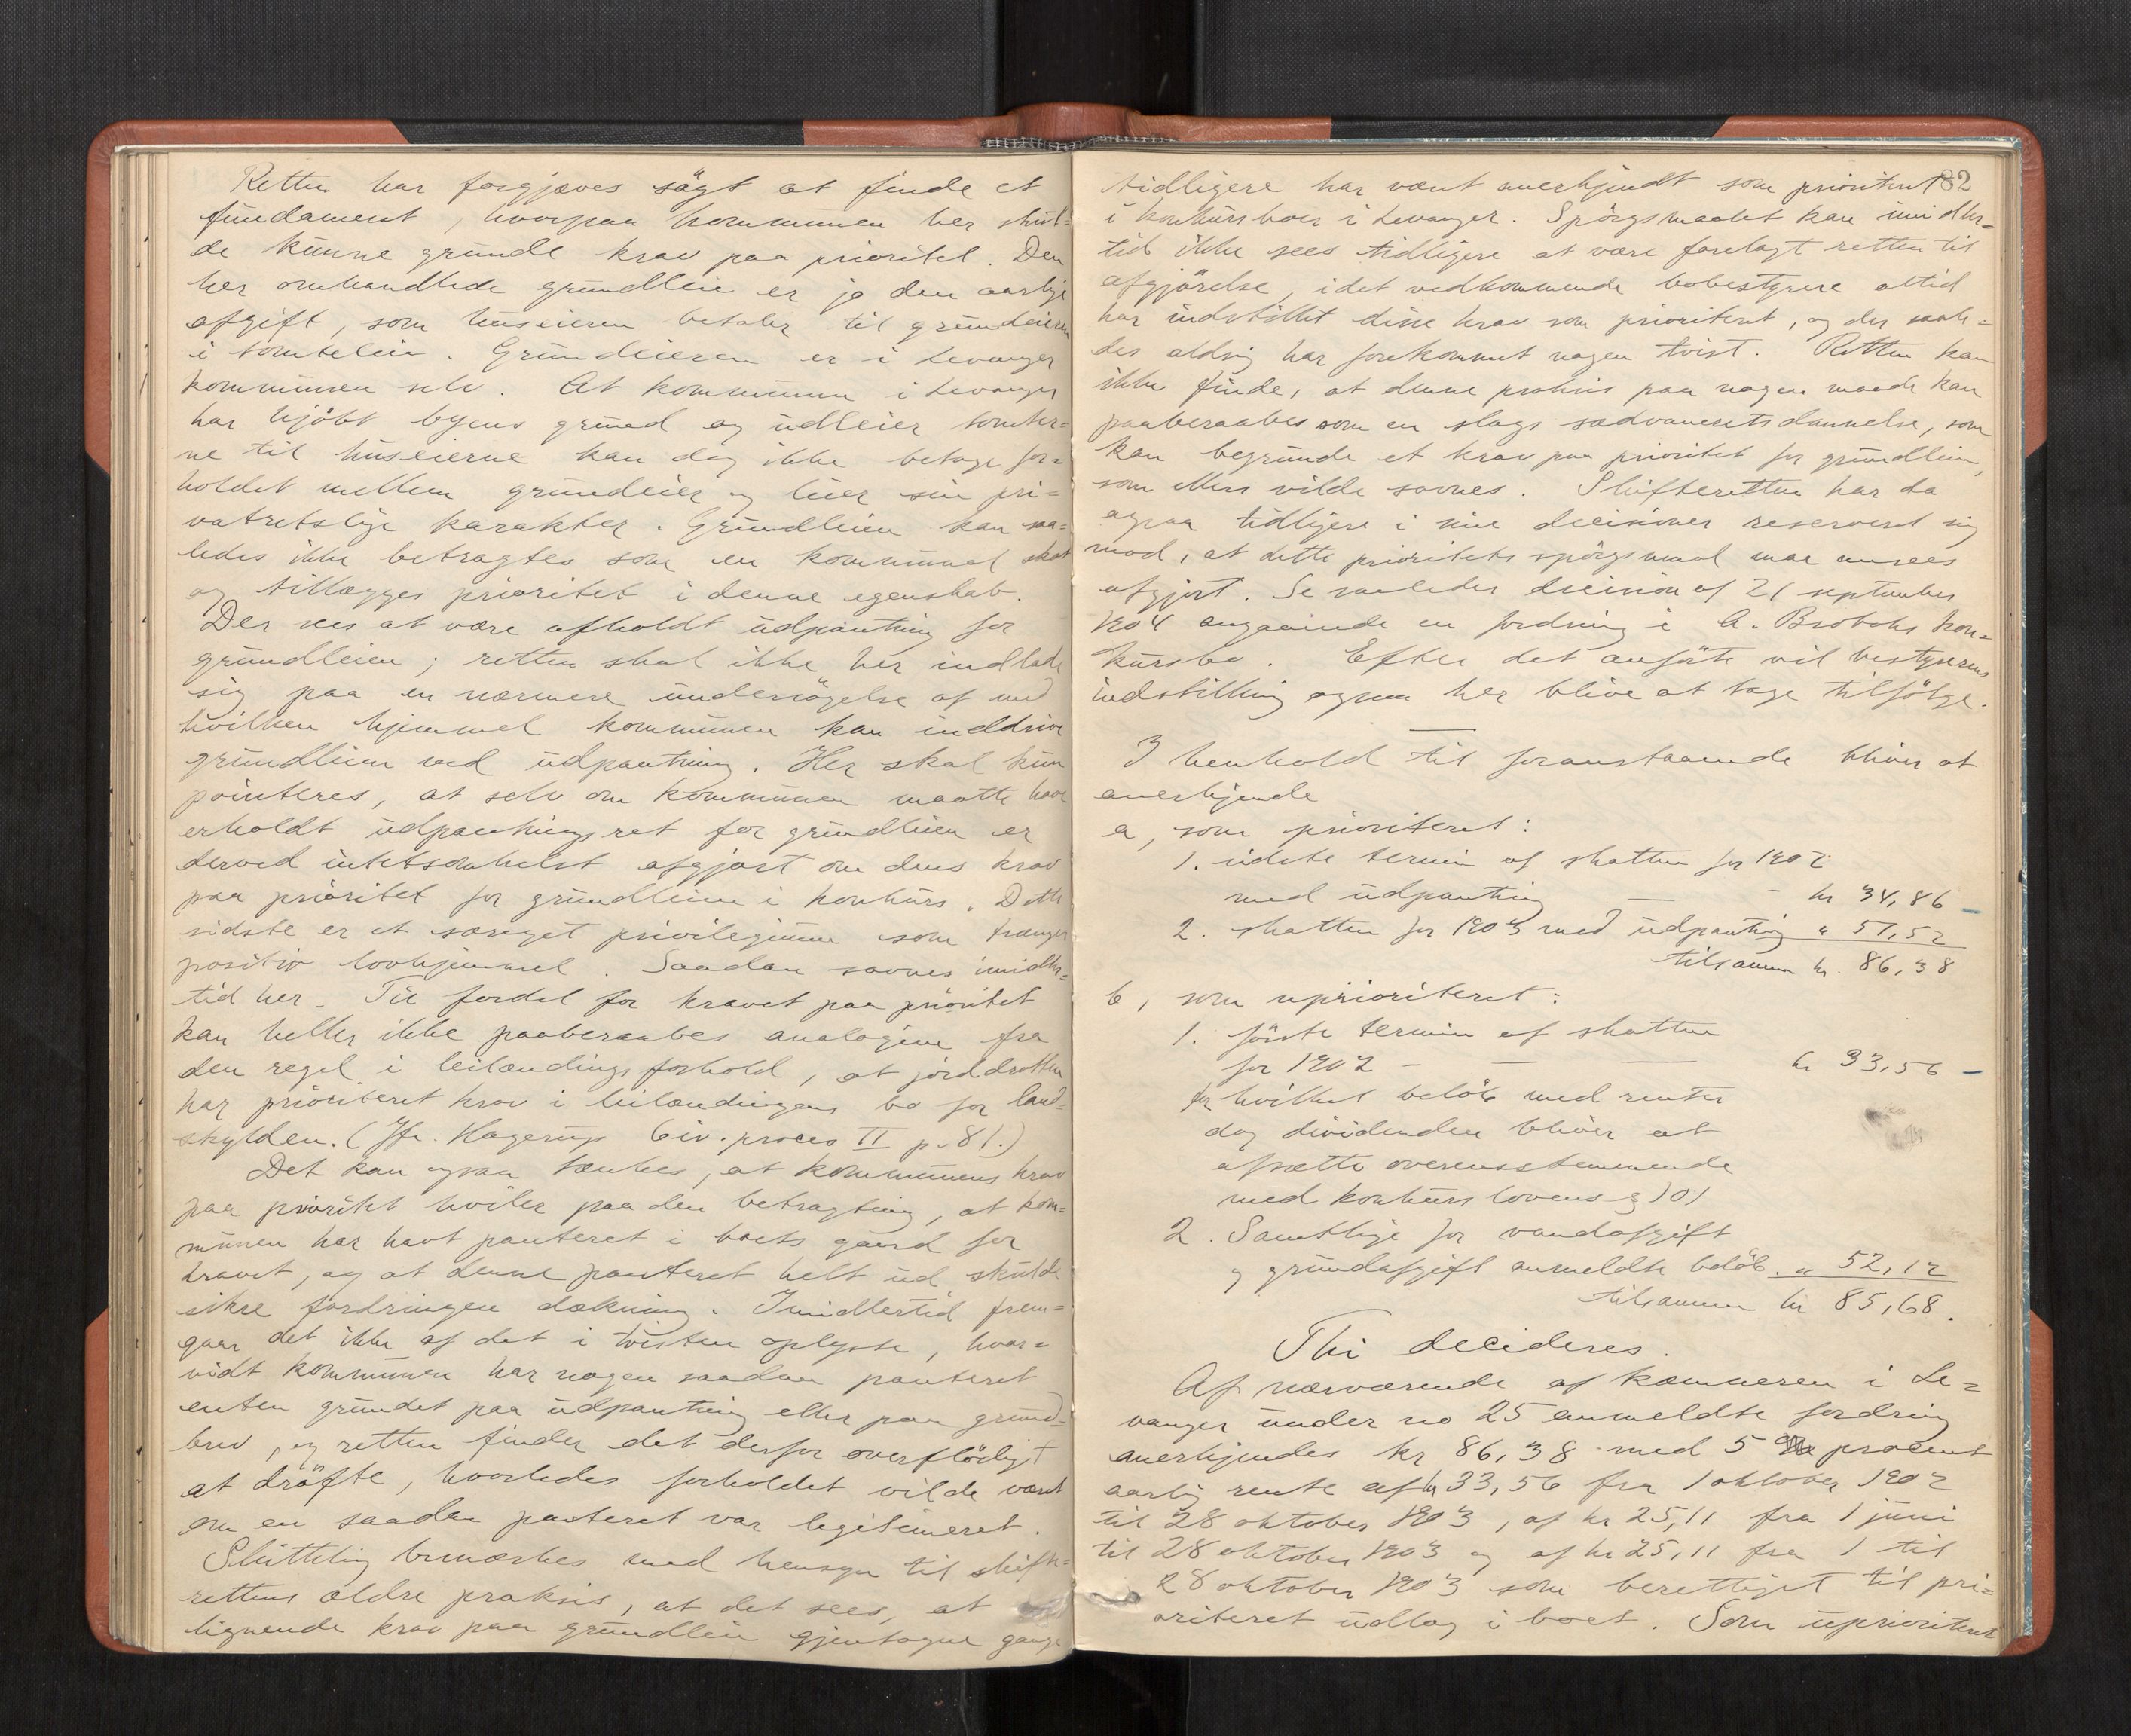 Retten har forgjæves søgt at finde et
fundament, hvorpaa kommunen her skul=
de kunne grunde krav paa prioritet. Den
her omhandlede grundleie er jo den aarlige
afgift, som huseieren betaler til grundeieren
i tomteleie. Grundeieren er i Levanger
kommunen selv. At kommunen i Levanger
har kjøbt byens grund og udleier tomter=
ne til huseierne kan dog ikke betage for=
holdet mellem grundeier og leier sin pri=
vatretslige karakter. Grundleien kan saa=
ledes ikke betragtes som en kommunal skat
og tillægges prioritet i denne egenskab.
Der sees at være afholdt udpantning for
grundleien; retten skal ikke her indlade
sig paa en nærmere undersøgelse af med
hvilken hjemmel kommunen kan inddrive
grundleien ved udpantning. Her skal kun
pointeres, at selv om kommunen maatte have
erholdt udpantningsret for grundleien er
derved intetsomhelst afgjort om dens krav
paa prioritet for grundleien i konkurs. Dette
sidste er et særeget privilegium som trænger
positiv lovhjemmel. Saadan savnes imidler=
tid her. Til fordel for kravet paa prioritet
kan heller ikke paaberaabes analogien fra
den regel i leilændingsforhold, at jorddrotten
har prioriteret krav i leilændingens bo for land=
skylden. (Jfr. Hagerup Civ. proces II p. 81.)
Det kan ogsaa tænkes, at kommunens krav
paa prioritet hviler paa den betragtning, at kom=
munen har havt panteret i boets gaard for
kravet, og at denne panteret helt ud skulde
sikre fordringen dækning. Imidlertid frem=
gaar det ikke af det i tvisten oplyste, hvor=
vidt kommunen har nogen saadan panteret
enten grundet paa udpantning eller paa grund=
brev, og retten finder det derfor overflødigt
at drøfte, hvorledes forholdet vilde været
om en saadan panteret var legitimeret.
Sluttelig bemærkes med hensyn til skifte=
rettens ældre praksis, at det sees, at
lignende krav paa grundleie gjentagne gange
82
tidligere har været anerkjendt som prioriteret
i konkursboer i Levanger. Spørgsmaalet kan imidler=
tid ikke sees tidligere at være forelagt retten til
afgjørelse, idet vedkommende bobestyrere altid
har indstillet disse krav som prioriteret, og der saale=
des aldrig har forekommet nogen tvist. Retten kan
ikke finde, at denne praksis paa nogen maade kan
paaberaabes som en slags sædvaneretsdannelse, som
kan begrunde et krav paa prioritet for grundleien,
som ellers vilde savnes. Skifteretten har da
ogsaa tidligere i sine decisioner reserveret sig
mod, at dette prioritetsspørgsmaal maa ansees
afgjort. Se saaledes decision af 21 september
1904 angaaende en fordring i A. Brobaks kon=
kursbo. Efter det anførte vil bestyrerens
indstilling ogsaa her blive at tage tilfølge.
I henhold til foranstaaende bliver at
anerkjende
a, som prioriteret:
1. sidste termin af skatten for 1902
med udpantning — - kr 34,86 -
2. skatten for 1903 med udpantning " 51,52
tilsammen kr. 86,38
b, som uprioriteret:
1. første termin af skatten
for 1902 - — — kr 33,56 -
for hvilket beløb med renter
dog dividenden bliver at
afsætte overensstemmende
med konkurslovens § 101
2. Samtlige for vandafgift
og grundafgift anmeldte beløb. " 52,12
tilsammen kr 85,68.
Thi decideres.
Af nærværende af kæmneren i Le=
vanger under no 25 anmeldte fordring
anerkjendes kr 86,38 med 5 procent
aarlig rente af kr 33,56 fra 1 oktober 1902
til 28 oktober 1903, af kr 25,11 fra 1 juni
til 28 oktober 1903 og af kr 25,11 fra 1 til
28 oktober 1903 som berettiget til pri=
oriteret udlæg i boet. Som uprioriteret